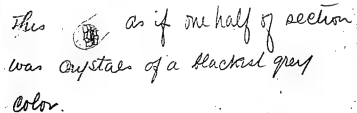 This as if one half of section
was crystals of a blackish grey
color.